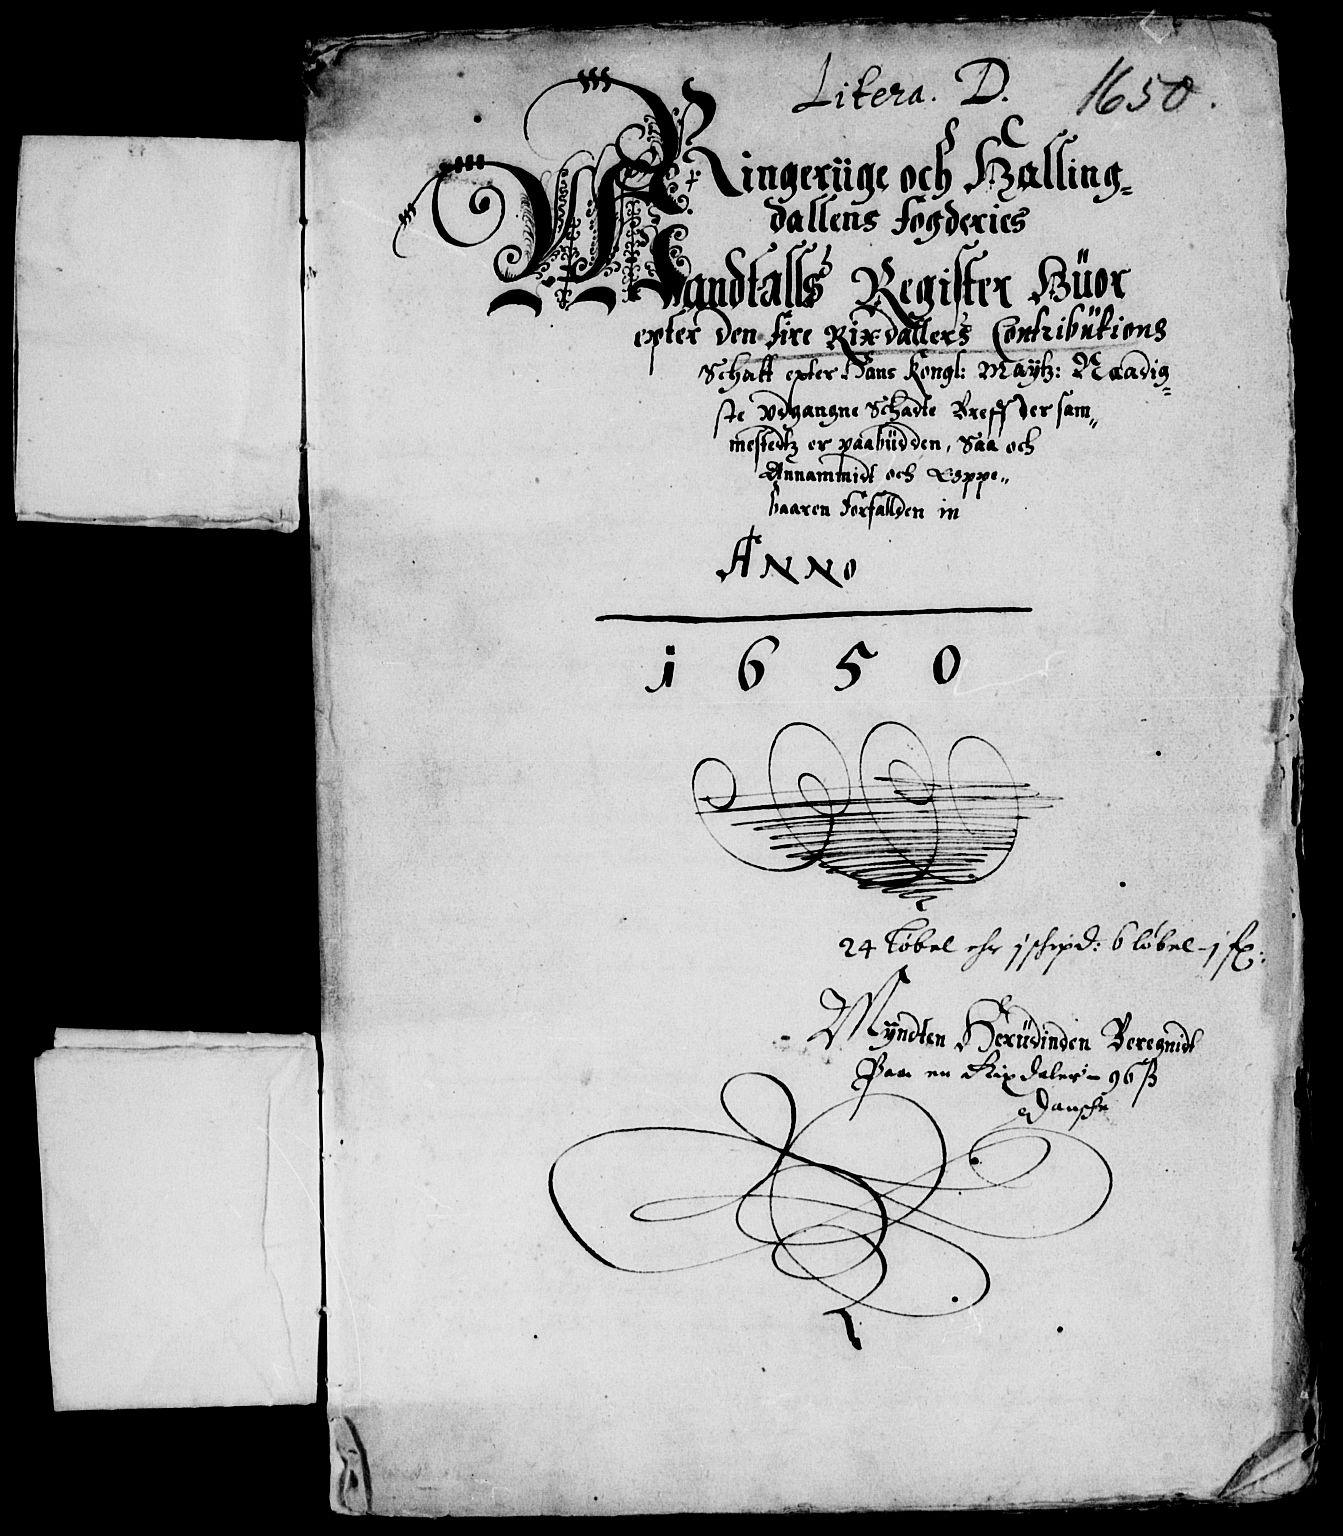 Litera. D. 1650.
Ringerüge och Halling-
dallens fogderies
Mandtalls Register Hüor
epter den fire Rixdallers Contribütions
Schatt epter Hans Kongl: Maÿtz: Naadig-
ste Vdgangne Schadte Breff der sam-
mestedtz er paabüdden, Saa och
Annammidt och Oppe-
baaren forfallden in
ANNO
1650
24 Løbel ehr 1 schipd: 6 løbel - 1
Mÿndten Herüdinden Beregnidt
Paa en Rixdaler - 96 ß
Danske